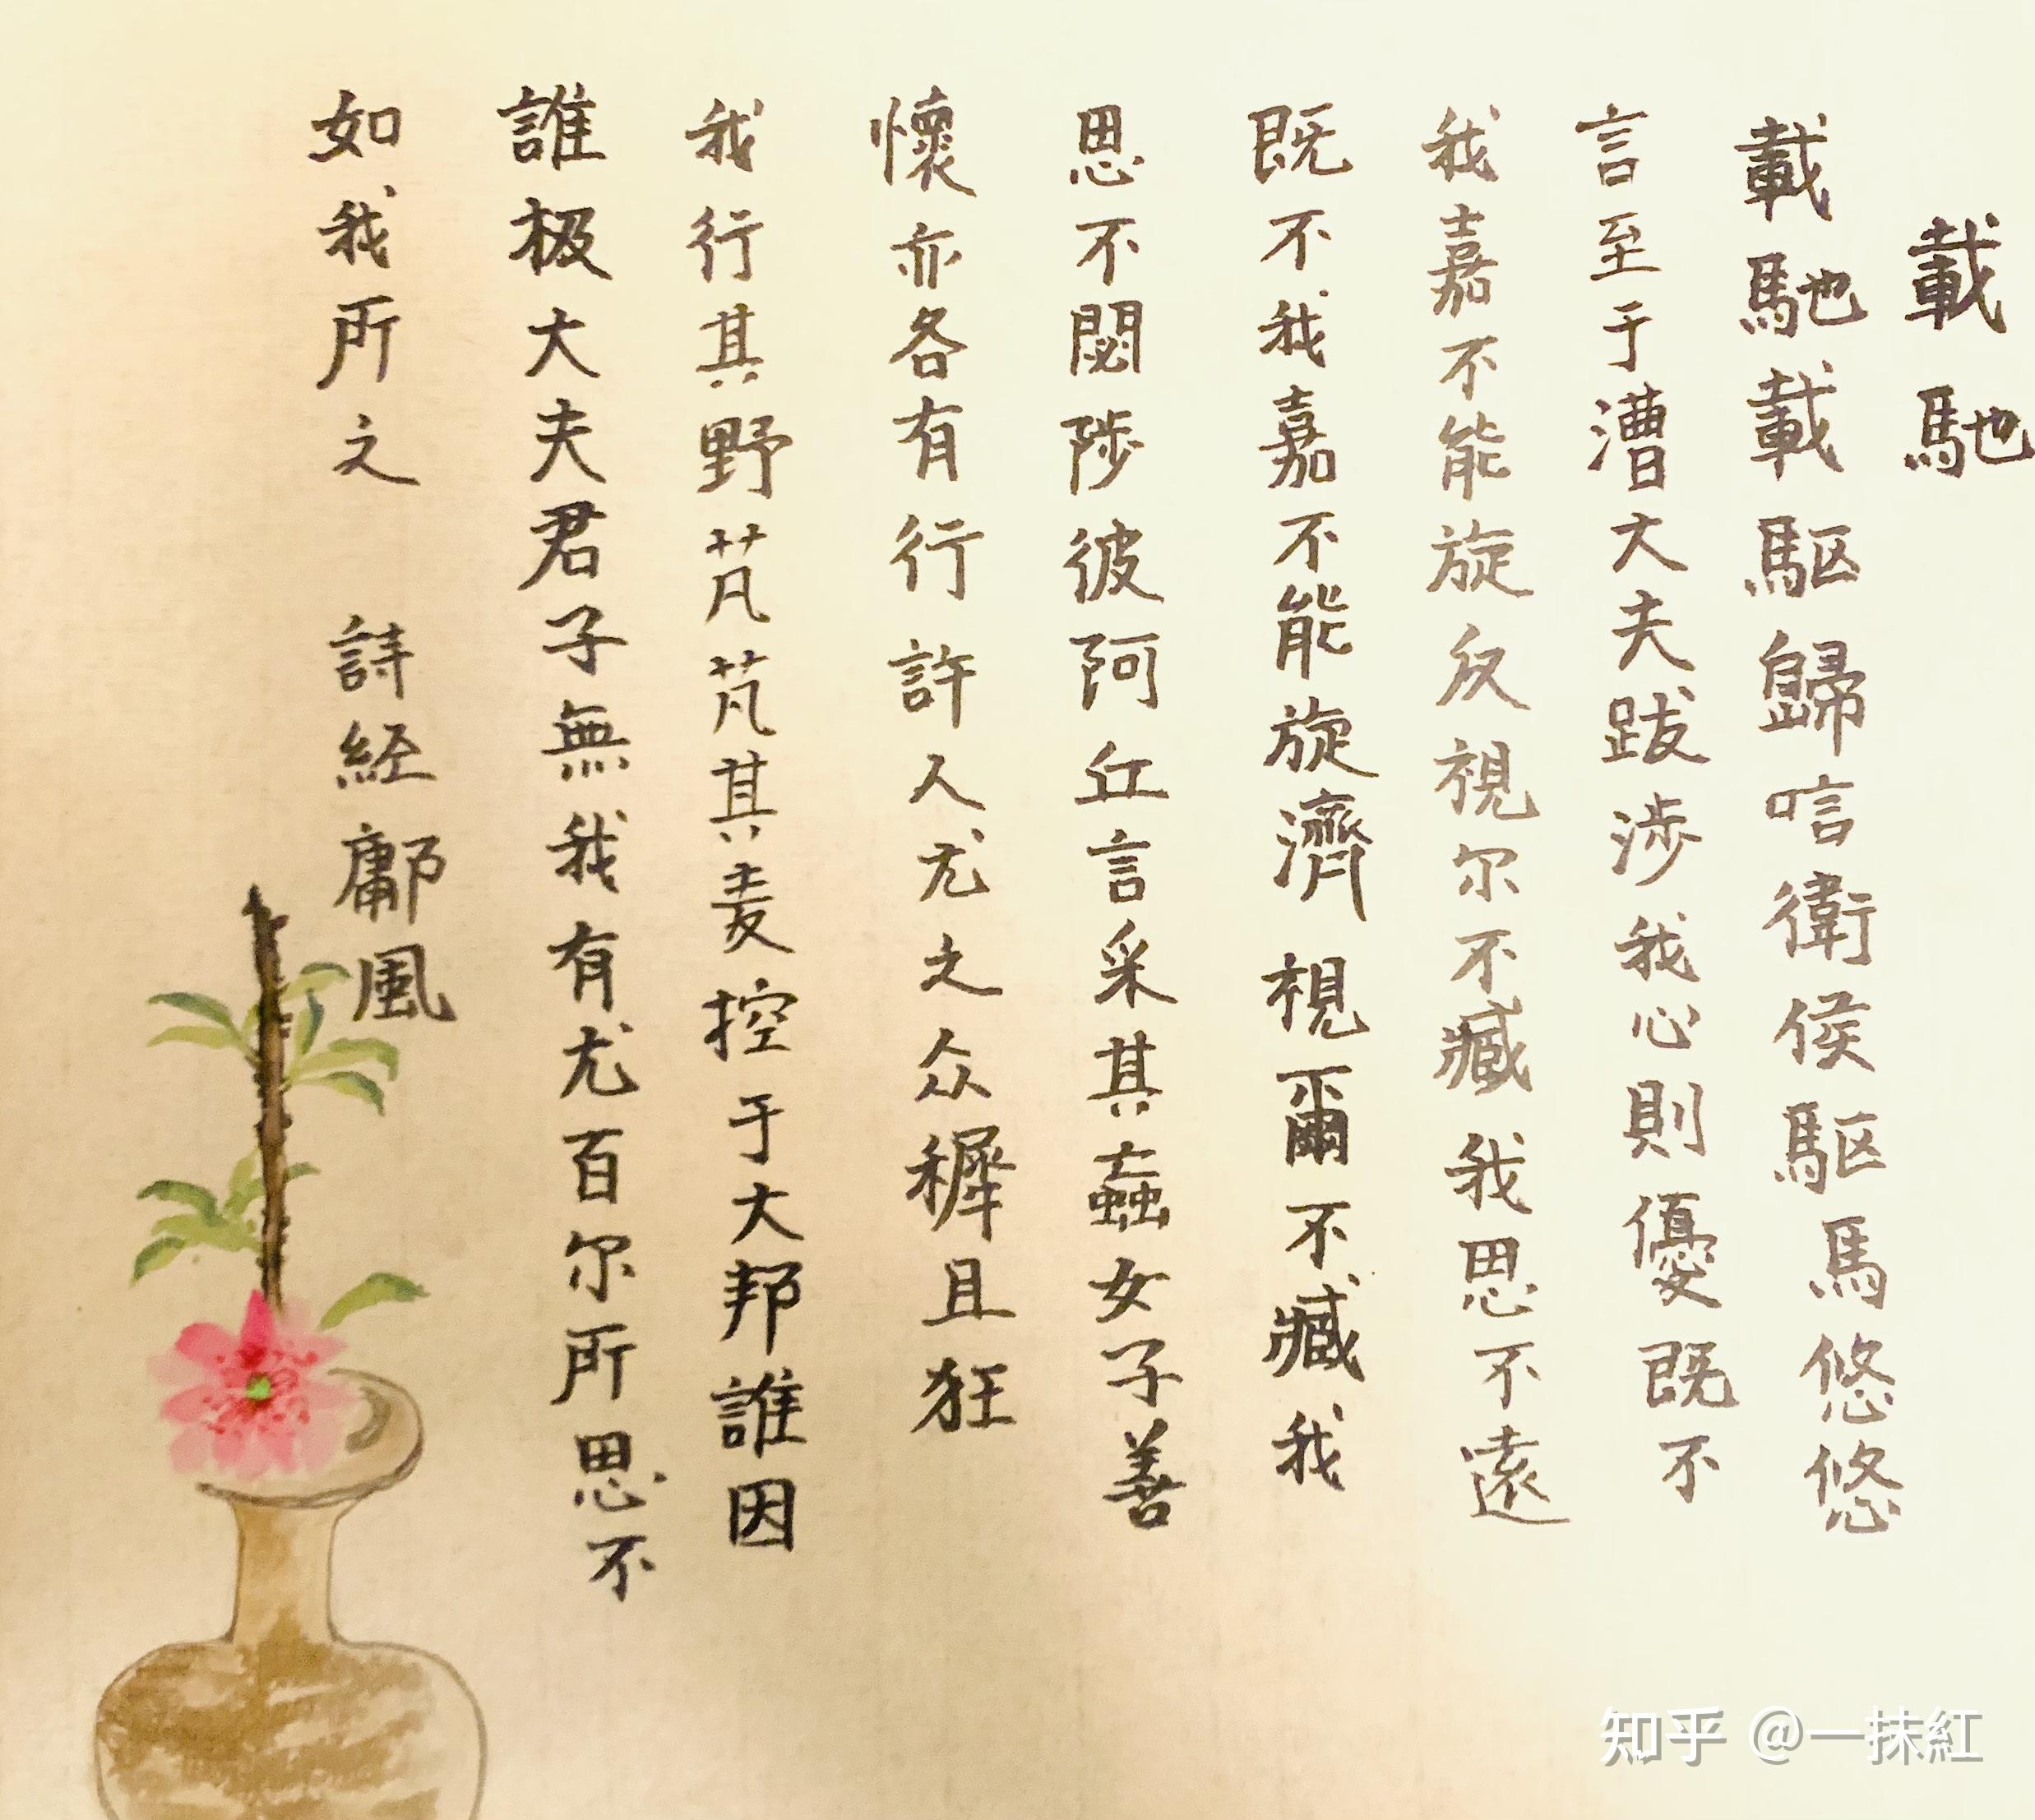 載馳
載馳載駆歸唁衛侯駆馬悠悠
言至于漕大夫跋涉我心則優既不
我嘉不能旋反視尔不臧我思不遠
既不我嘉不能旋濟視爾不臧我
思不閟陟彼阿丘言采其蝱女子善
懷亦各有行許人尤之众穉且狂
我行其野芃芃其麦控于大邦誰因
誰极大夫君子無我有尤百尔所思不
如我所之 詩経鄘風
知乎 @一抹紅